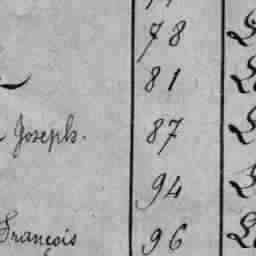 78
81
Joseph. 87
94
François 96